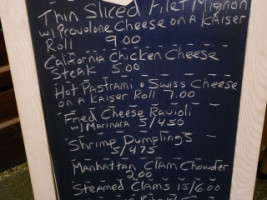 Thin Sliced Filet Mignon
w/ Provolone Cheese on a Kaiser
Roll 9.00
California Chicken Cheese
Steak 5.00
Hot Pastrami & Swiss Cheese
on a Kaiser Roll 7.00
Fried Cheese Ravioli
w/ Marinara 5/4.50
Shrimp Dumplings
5/4.75
Manhattan Clam Chowder
2.00
Steamed Clams 15/6.00